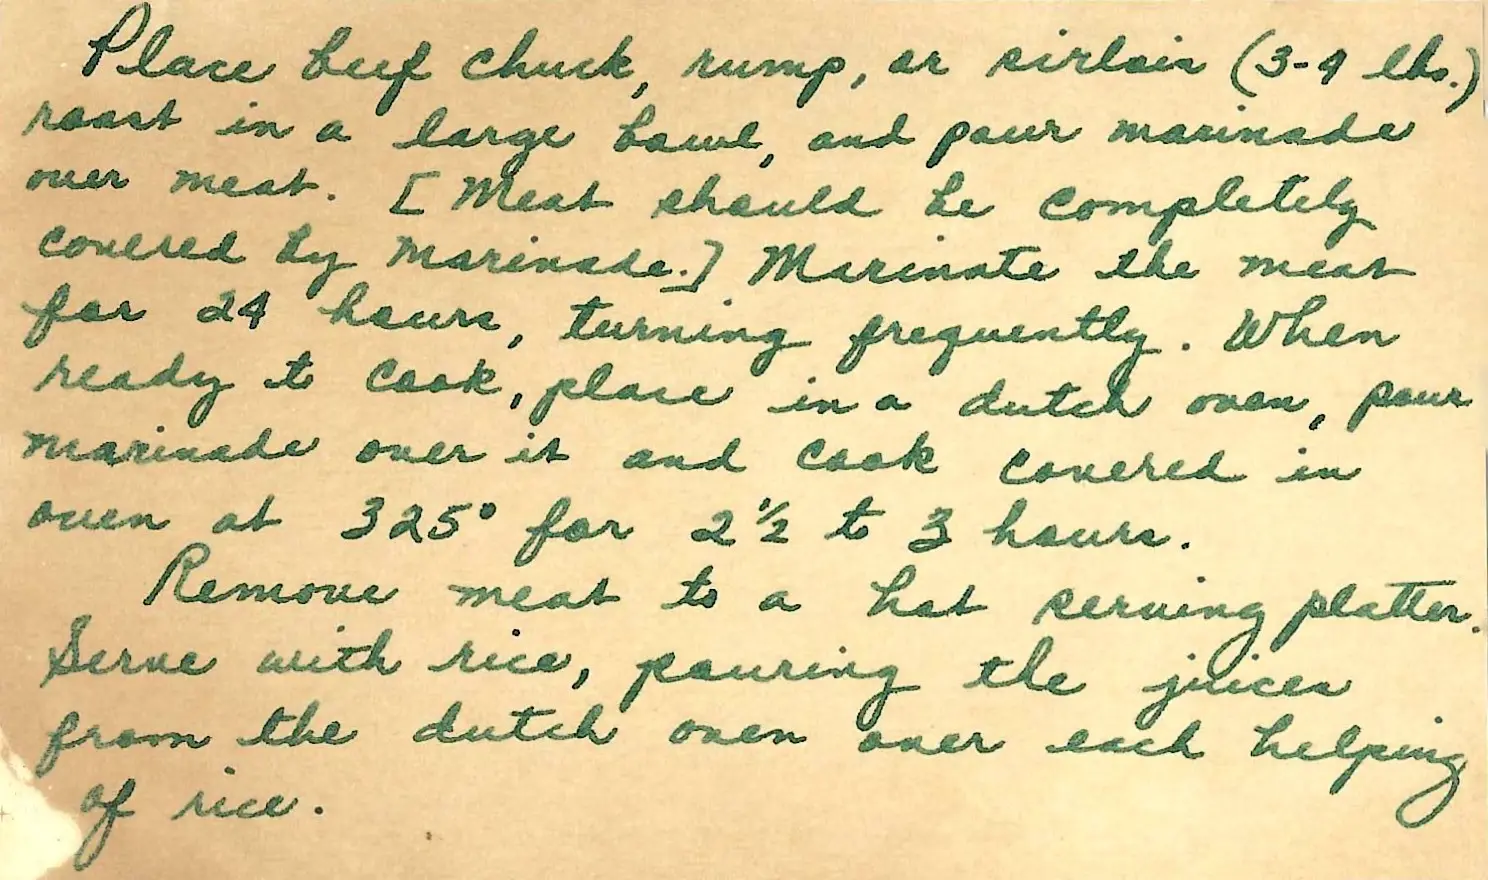 Place beef chuck, rump, or sirloin (3-4 lbs.)
roast in a large bowl, and pour marinade
over meat. [Meat should be completely
covered by marinade.] Marinate the meat
for 24 hours, turning frequently. When
ready to cook, place in a dutch oven, pour
marinade over it and cook covered in
oven at 325° for 2 1/2 to 3 hours.
Remove meat to a hot serving platter.
Serve with rice, pouring the juices
from the dutch oven over each helping
of rice.